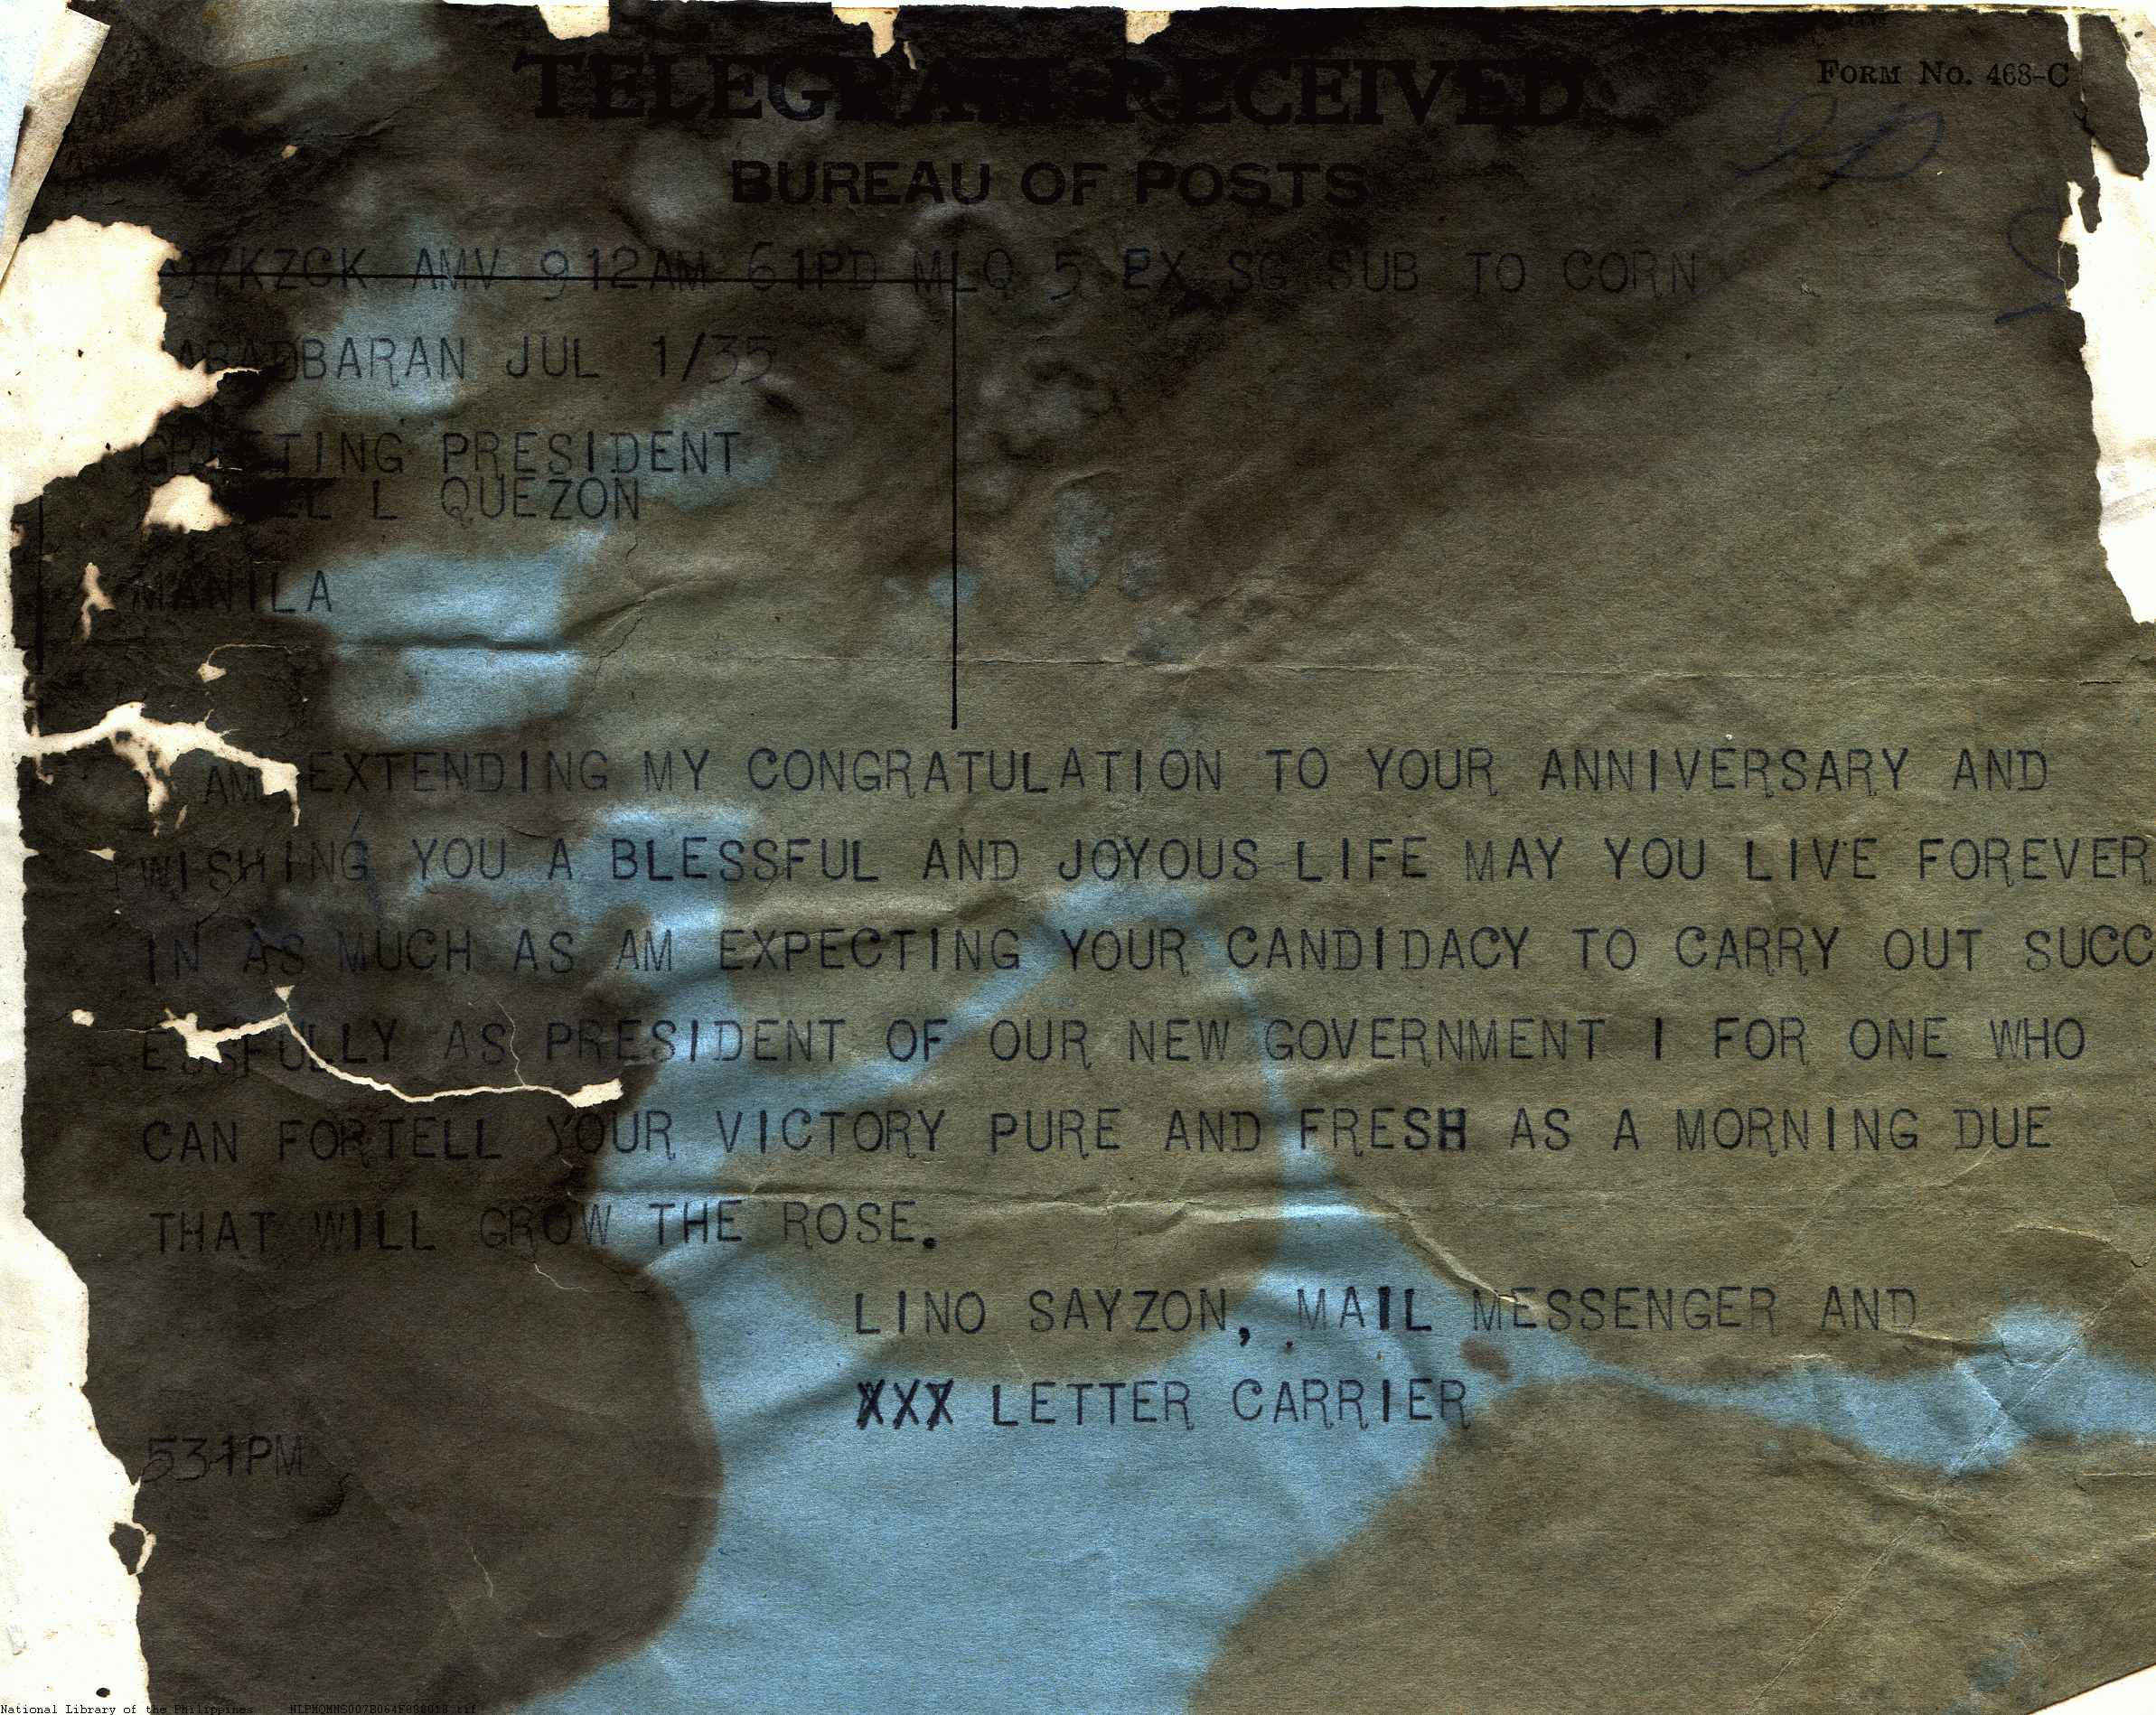 TELEGRAM RECEIVED
FORM NO. 468-C
BUREAU OF POSTS
97KZCK AMV 912AM 61PD MLQ 5 EX SG SUB TO CORN
ABADBARAN JUL 1/35
GREETING PRESIDENT
EL L QUEZON
MANILA
AM EXTENDING MY CONGRATULATION TO YOUR ANNIVERSARY AND
WISHING YOU A BLESSFUL AND JOYOUS LIFE MAY YOU LIVE FOREVER
IN AS MUCH AS AM EXPECTING YOUR CANDIDACY TO CARRY OUT SUCC
ESSFULLY AS PRESIDENT OF OUR NEW GOVERNMENT I FOR ONE WHO
CAN FORTELL YOUR VICTORY PURE AND FRESH AS A MORNING DUE
THAT WILL GROW THE ROSE.
LINO SAYZON, MAIL MESSENGER AND
XXX LETTER CARRIER
531PM
National Library of the Philippines